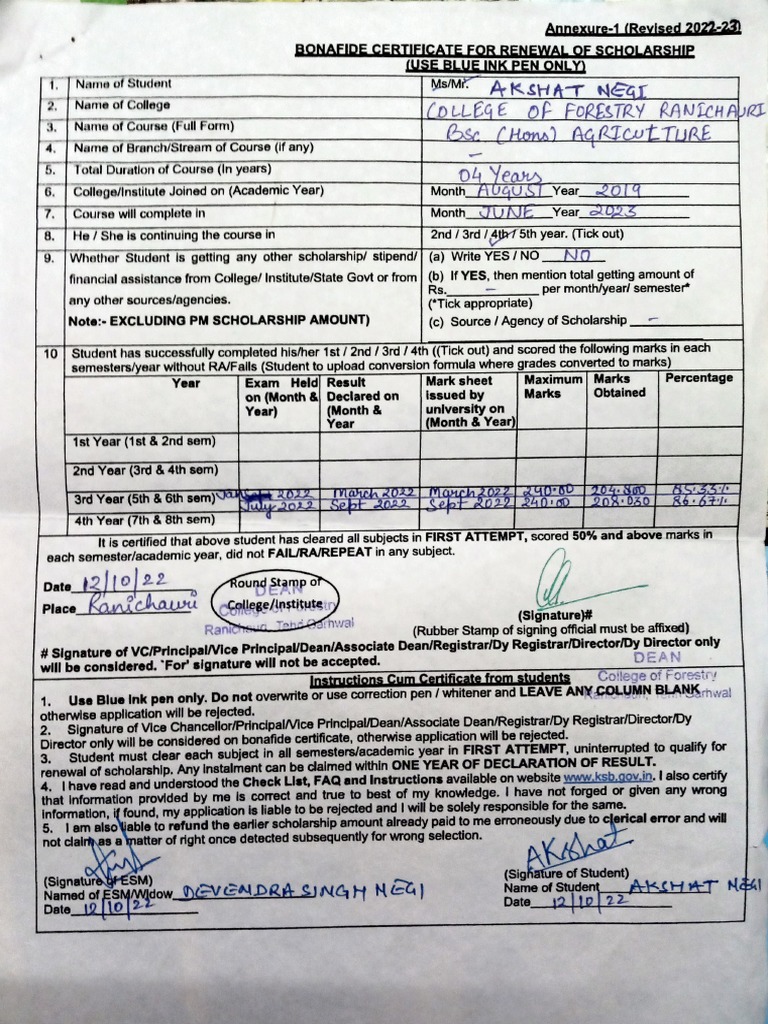 Annexure-1 (Revised 2022-23)
BONAFIDE CERTIFICATE FOR RENEWAL OF SCHOLARSHIP
(USE BLUE INK PEN ONLY)
1. Name of Student Ms/Mr. AKSHAT NEGI
2. Name of College COLLEGE OF FORESTRY RANICHAURI
3. Name of Course (Full Form) BSc (Hons) AGRICULTURE
4. Name of Branch/Stream of Course (if any) -
5. Total Duration of Course (In years) 04 Years
6. College/Institute Joined on (Academic Year) Month AUGUST Year 2019
7. Course will complete in Month JUNE Year 2023
8. He / She is continuing the course in 2nd / 3rd / 4th / 5th year. (Tick out)
9. Whether Student is getting any other scholarship/ stipend/ (a) Write YES / NO NO
financial assistance from College/ Institute/State Govt or from (b) If YES, then mention total getting amount of
any other sources/agencies. Rs. - per month/year/ semester*
(*Tick appropriate)
Note:- EXCLUDING PM SCHOLARSHIP AMOUNT) (c) Source / Agency of Scholarship -
10 Student has successfully completed his/her 1st / 2nd / 3rd / 4th ((Tick out) and scored the following marks in each
semesters/year without RA/Fails (Student to upload conversion formula where grades converted to marks)
Year Exam Held on (Month & Year) Result Declared on (Month & Year Mark sheet issued by university on (Month & Year) Maximum Marks Marks Obtained Percentage
1st Year (1st & 2nd sem)
2nd Year (3rd & 4th sem)
3rd Year (5th & 6th sem) 2022 March 2022 March 2022 240.00 204.800 85.33%
July 2022 Sept 2022 Sept 2022 240.00 208.030 86.67%
4th Year (7th & 8th sem)
It is certified that above student has cleared all subjects in FIRST ATTEMPT, scored 50% and above marks in
each semester/academic year, did not FAIL/RA/REPEAT in any subject.
Date 12/10/22
Place Ranichauri
Round Stamp of
College/Institute
DEAN
College of Forestry
Ranichauri, Tehri Garhwal
(Signature)#
(Rubber Stamp of signing official must be affixed)
# Signature of VC/Principal/Vice Principal/Dean/Associate Dean/Registrar/Dy Registrar/Director/Dy Director only
will be considered. 'For' signature will not be accepted.
DEAN
College of Forestry
Ranichauri, Tehri Garhwal
Instructions Cum Certificate from students
1. Use Blue ink pen only. Do not overwrite or use correction pen / whitener and LEAVE ANY COLUMN BLANK
otherwise application will be rejected.
2. Signature of Vice Chancellor/Principal/Vice Principal/Dean/Associate Dean/Registrar/Dy Registrar/Director/Dy
Director only will be considered on bonafide certificate, otherwise application will be rejected.
3. Student must clear each subject in all semesters/academic year in FIRST ATTEMPT, uninterrupted to qualify for
renewal of scholarship. Any instalment can be claimed within ONE YEAR OF DECLARATION OF RESULT.
4. I have read and understood the Check List, FAQ and Instructions available on website www.ksb.gov.in. I also certify
that information provided by me is correct and true to best of my knowledge. I have not forged or given any wrong
information, if found, my application is liable to be rejected and I will be solely responsible for the same.
5. I am also liable to refund the earlier scholarship amount already paid to me erroneously due to clerical error and will
not claim as a matter of right once detected subsequently for wrong selection.
AKshat
(Signature of ESM) (Signature of Student)
Named of ESM/Widow DEVENDRA SINGH NEGI Name of Student AKSHAT NEGI
Date 12/10/22 Date 12/10/22